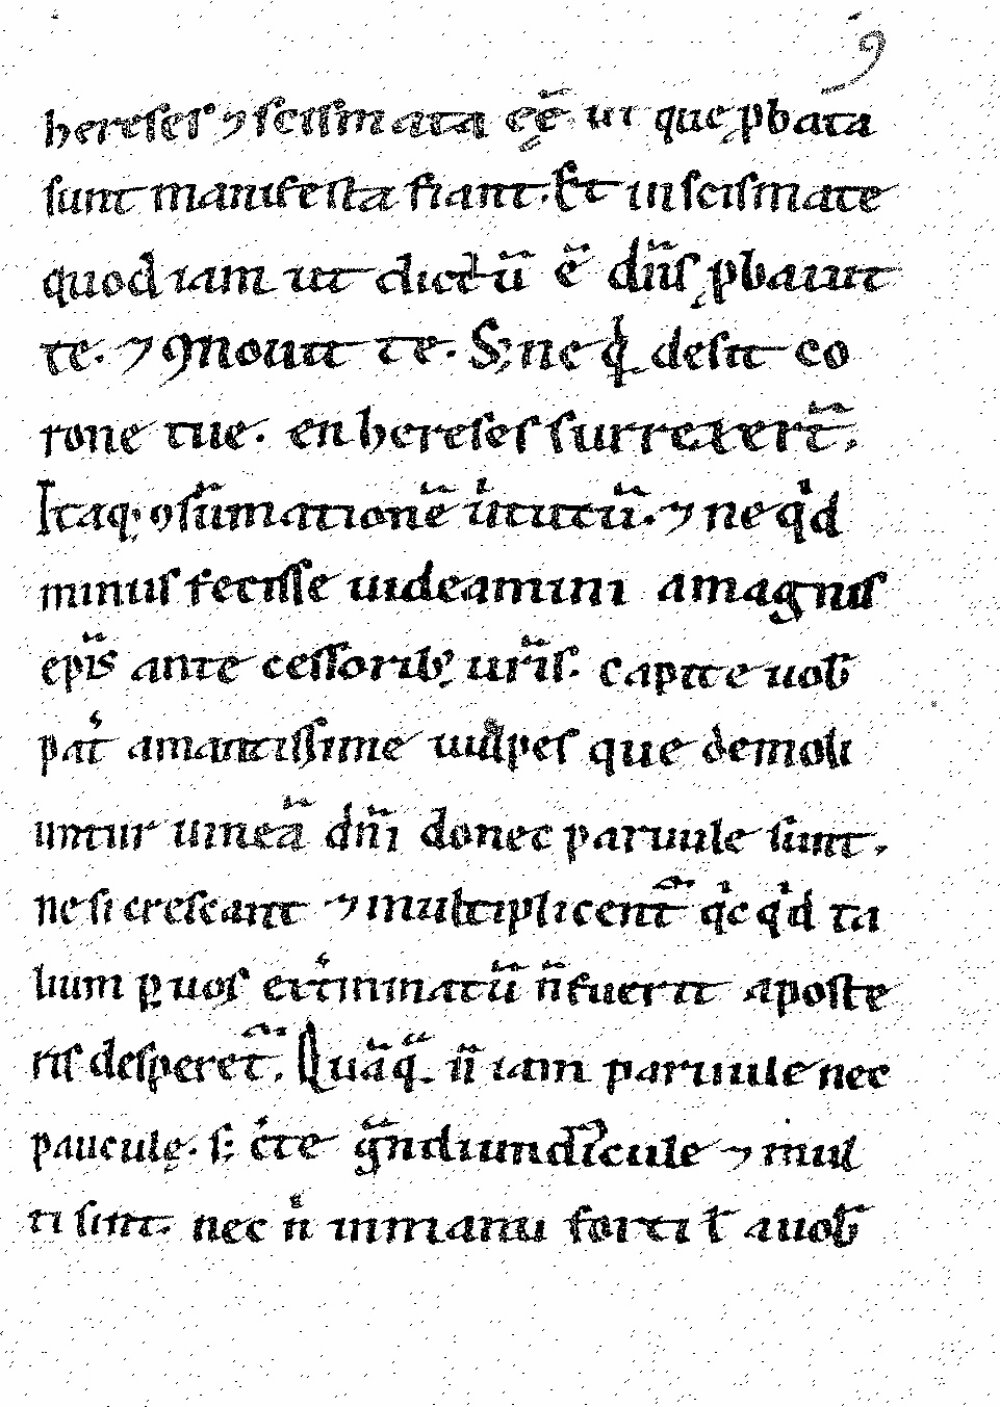 9
hereses ⁊ scismata eē ut que ꝓbata
sunt manifesta fiant. Et in scismate
quod iam ut dictū ē dn̄s ꝓbauit
te. ⁊ ꝯmouit te. Sꝫ ne qͥ desit co
rone tue. en hereses surrexert̄.
Itaqꝫ ꝯsūmationē ūtutū. ⁊ ne qͥd
minus fecisse uideamini a magnis
ep̄is ante cessoribꝫ ur̄is. capite uob̄
pat̄ amantissime uulpes que demoli
untur uineā dn̄i donec paruule sunt.
ne si crescant ⁊ multiplicent̄ qͥcqͥd ta
lium ꝑ uos ext̄minatū n̄ fuerit a poste
ris desperet̄. Quāq̄ n̄ iam paruule nec
paucule. sꝫ c̄te gͣndiuscule ⁊ mul
ti sunt. nec nͥ in manu forti t̄ a uob̄